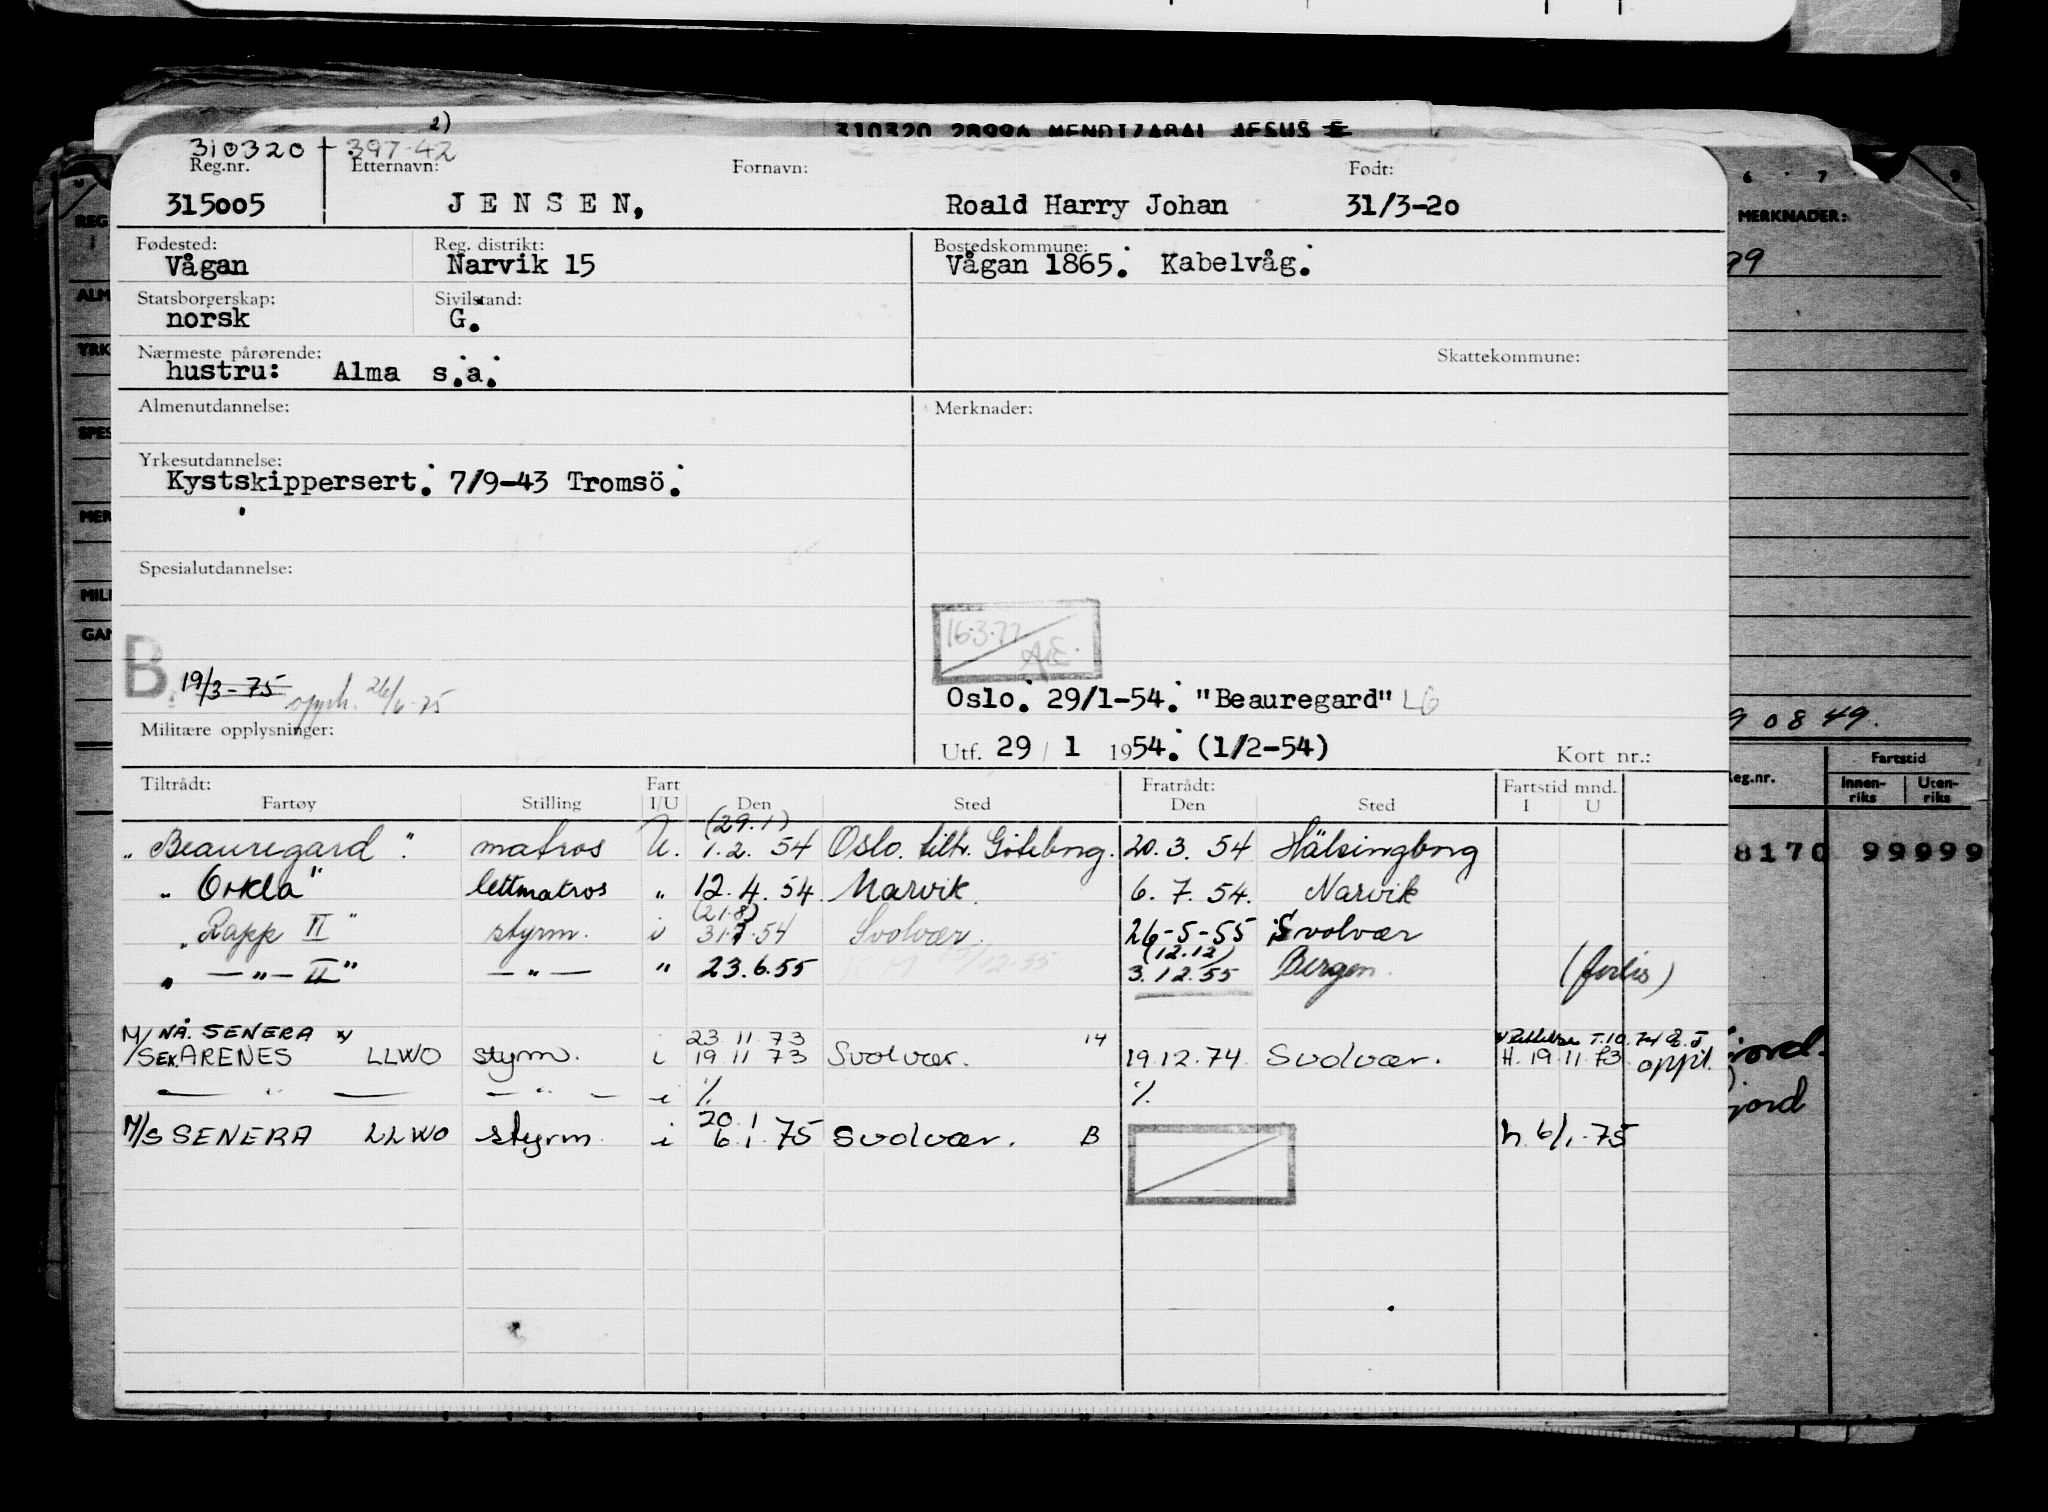 310320 28996 MENDIZABAL JESUS E
2)
310320 + 397-42
Reg.nr. Etternavn: Fornavn: Født:
315005 JENSEN, Roald Harry Johan 31/3-20
Fødested: Reg. distrikt: Bostedskommune:
Vågan Narvik 15 Vågan 1865. Kabelvåg.
Statsborgerskap: Sivilstand:
norsk G.
Nærmeste pårørende: Skattekommune:
hustru: Alma s.a.
Almenutdannelse: Merknader:
Yrkesutdannelse:
Kystskippersert. 7/9-43 Tromsö.
Spesialutdannelse:
16.3.77
AE.
B. 19/3-75 opph. 26/6-75
Oslo. 29/1-54. "Beauregard" LG
Militære opplysninger:
Utf. 29 / 1 1954. (1/2-54) Kort nr.:
Tiltrådt: Fart Fratrådt: Fartstid mnd.
Fartøy Stilling I/U Den Sted Den Sted I U
(29.1)
"Beauregard". matros U. 1.2. 54 Oslo. tiltr. Göteborg. 20.3. 54 Hälsingborg
"Orkla" lettmatros " 12.4.54. Narvik. 6.7.54. Narvik
(21.8)
"Rapp II" styrm. i 31.7.54 Svolvær. 26-5-55 Svolvær
(12.12)
" —"— II" —"— " 23.6.55 3.12.55 Bergen. (forlis)
M/ NÅ. SENERA 23 11 73 14 T.10.74
/S EX. ARENES LLWO styrm. i 19 11 73 Svolvær. 19.12.74 Svolvær. H. 19 11 73 oppt.
— " — — " — i % %
20 1
M/S SENERA LLWO styrm. i 6.1.75 Svolvær. B h. 6/1.75
REG
ALM
YRK
SPES
MER
MILI
GAN
6 7 9
MERKNADER:
99
9 08 49.
Reg.nr. Fartstid
Innenriks Utenriks
8170 99999
jord